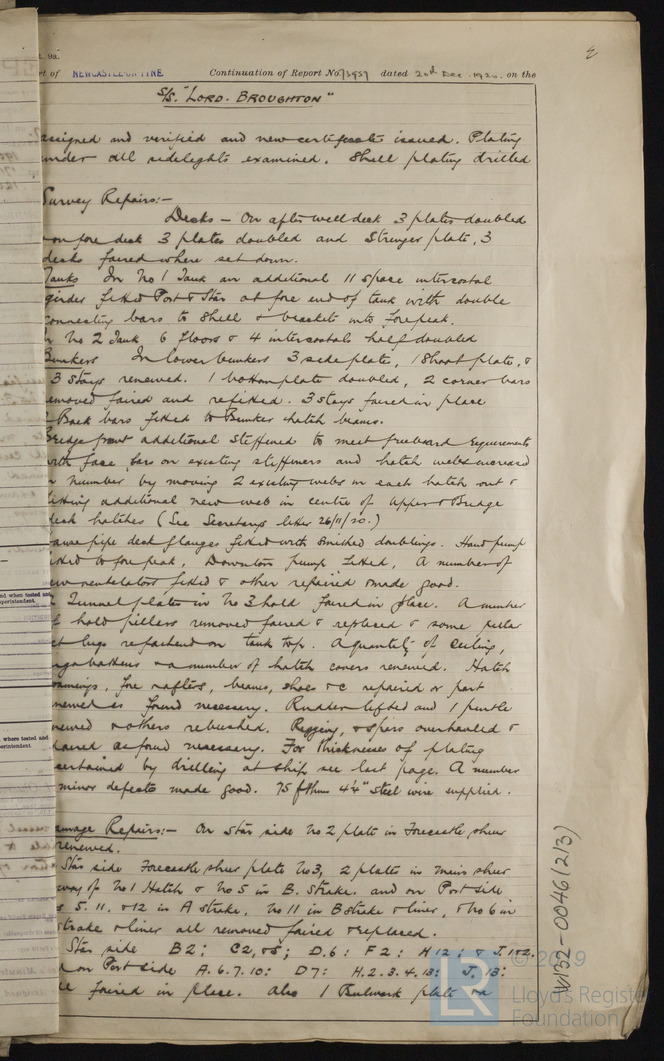 . 9a.
rt of NEWCASTLE-ON-TYNE Continuation of Report No. 73957 dated 20th Dec. 1920. on the
S/S. "LORD. BROUGHTON"
assigned and verified and new certificate issued. Plating
under all sidelights examined. Shell plating drilled
Survey Repairs:-
Decks - On after well deck 3 plates doubled
on fore deck 3 plates doubled and Stringer plate, 3
decks faired where set down.
Tanks In No 1 Tank an additional 11 space intercostal
girder fitted Port & Star at fore end of tank with double
connecting bars to Shell & brackets into Forepeak.
In No 2 Tank 6 floors & 4 intercostals half doubled
Bunkers In lower bunkers 3 side plate, 1 Shoot plate, &
3 Stays renewed. 1 bottom plate doubled, 2 corner bars
emoved faired and refitted. 3 stays faired in place
Back bars fitted to Bunker hatch beams.
Bridge front additional stiffened to meet freeboard requirements
with face bars on existing stiffeners and hatch webs increased
n number by moving 2 existing webs in each hatch out &
itting additional new web in centre of upper & Bridge
deck hatches (See Secretary's letter 26/11/20.)
awse pipe deck flanges fitted with doublings. Hand pump
itted to fore peak, Downton pump fitted, A number of
ew ventilators fitted & other repaired & made good.
Tunnel plates in No 3 hold faired in place. A number
f hold pillars removed faired & replaced & some pillar
lugs on tank top. A quantity of ceiling,
argo battens & a number of hatch covers renewed. Hatch
oamings, fore & afters, beams, shoes &c repaired or part
enewed as found necessary. Rudder lifted and 1 pintle
enewed & others rebushed. Rigging, & spars overhauled &
as found necessary. For thicknesses of plating
scertained by drilling at ship see last page. A number
minor defects made good. 75 fthms 4¼" Steel wire supplied.
amage Repairs:- On Star side No 2 plate in Forecastle sheer
renewed.
Star side Forecastle sheer plate No 3, 2 plates in main sheer
way of No 1 Hatch & No 5 in B. Strake. and on Port side
s 5. 11. & 12 in A strake, No 11 in B strake & liner, & No 6 in
strake & liner all removed faired & replaced.
Star side B2; C2, & 5; D.6; F2; H12; & J.1&2.
d on Port side A.6.7.10: D7: H.2.3.4.13: J.13:
faired in place. Also 1 Bulwark plate on
nd when tested and
uperintendent.
where tested and
erintendent.
W32-0046(2/3)
© 2019
LR
Lloyd's Register
Foundation